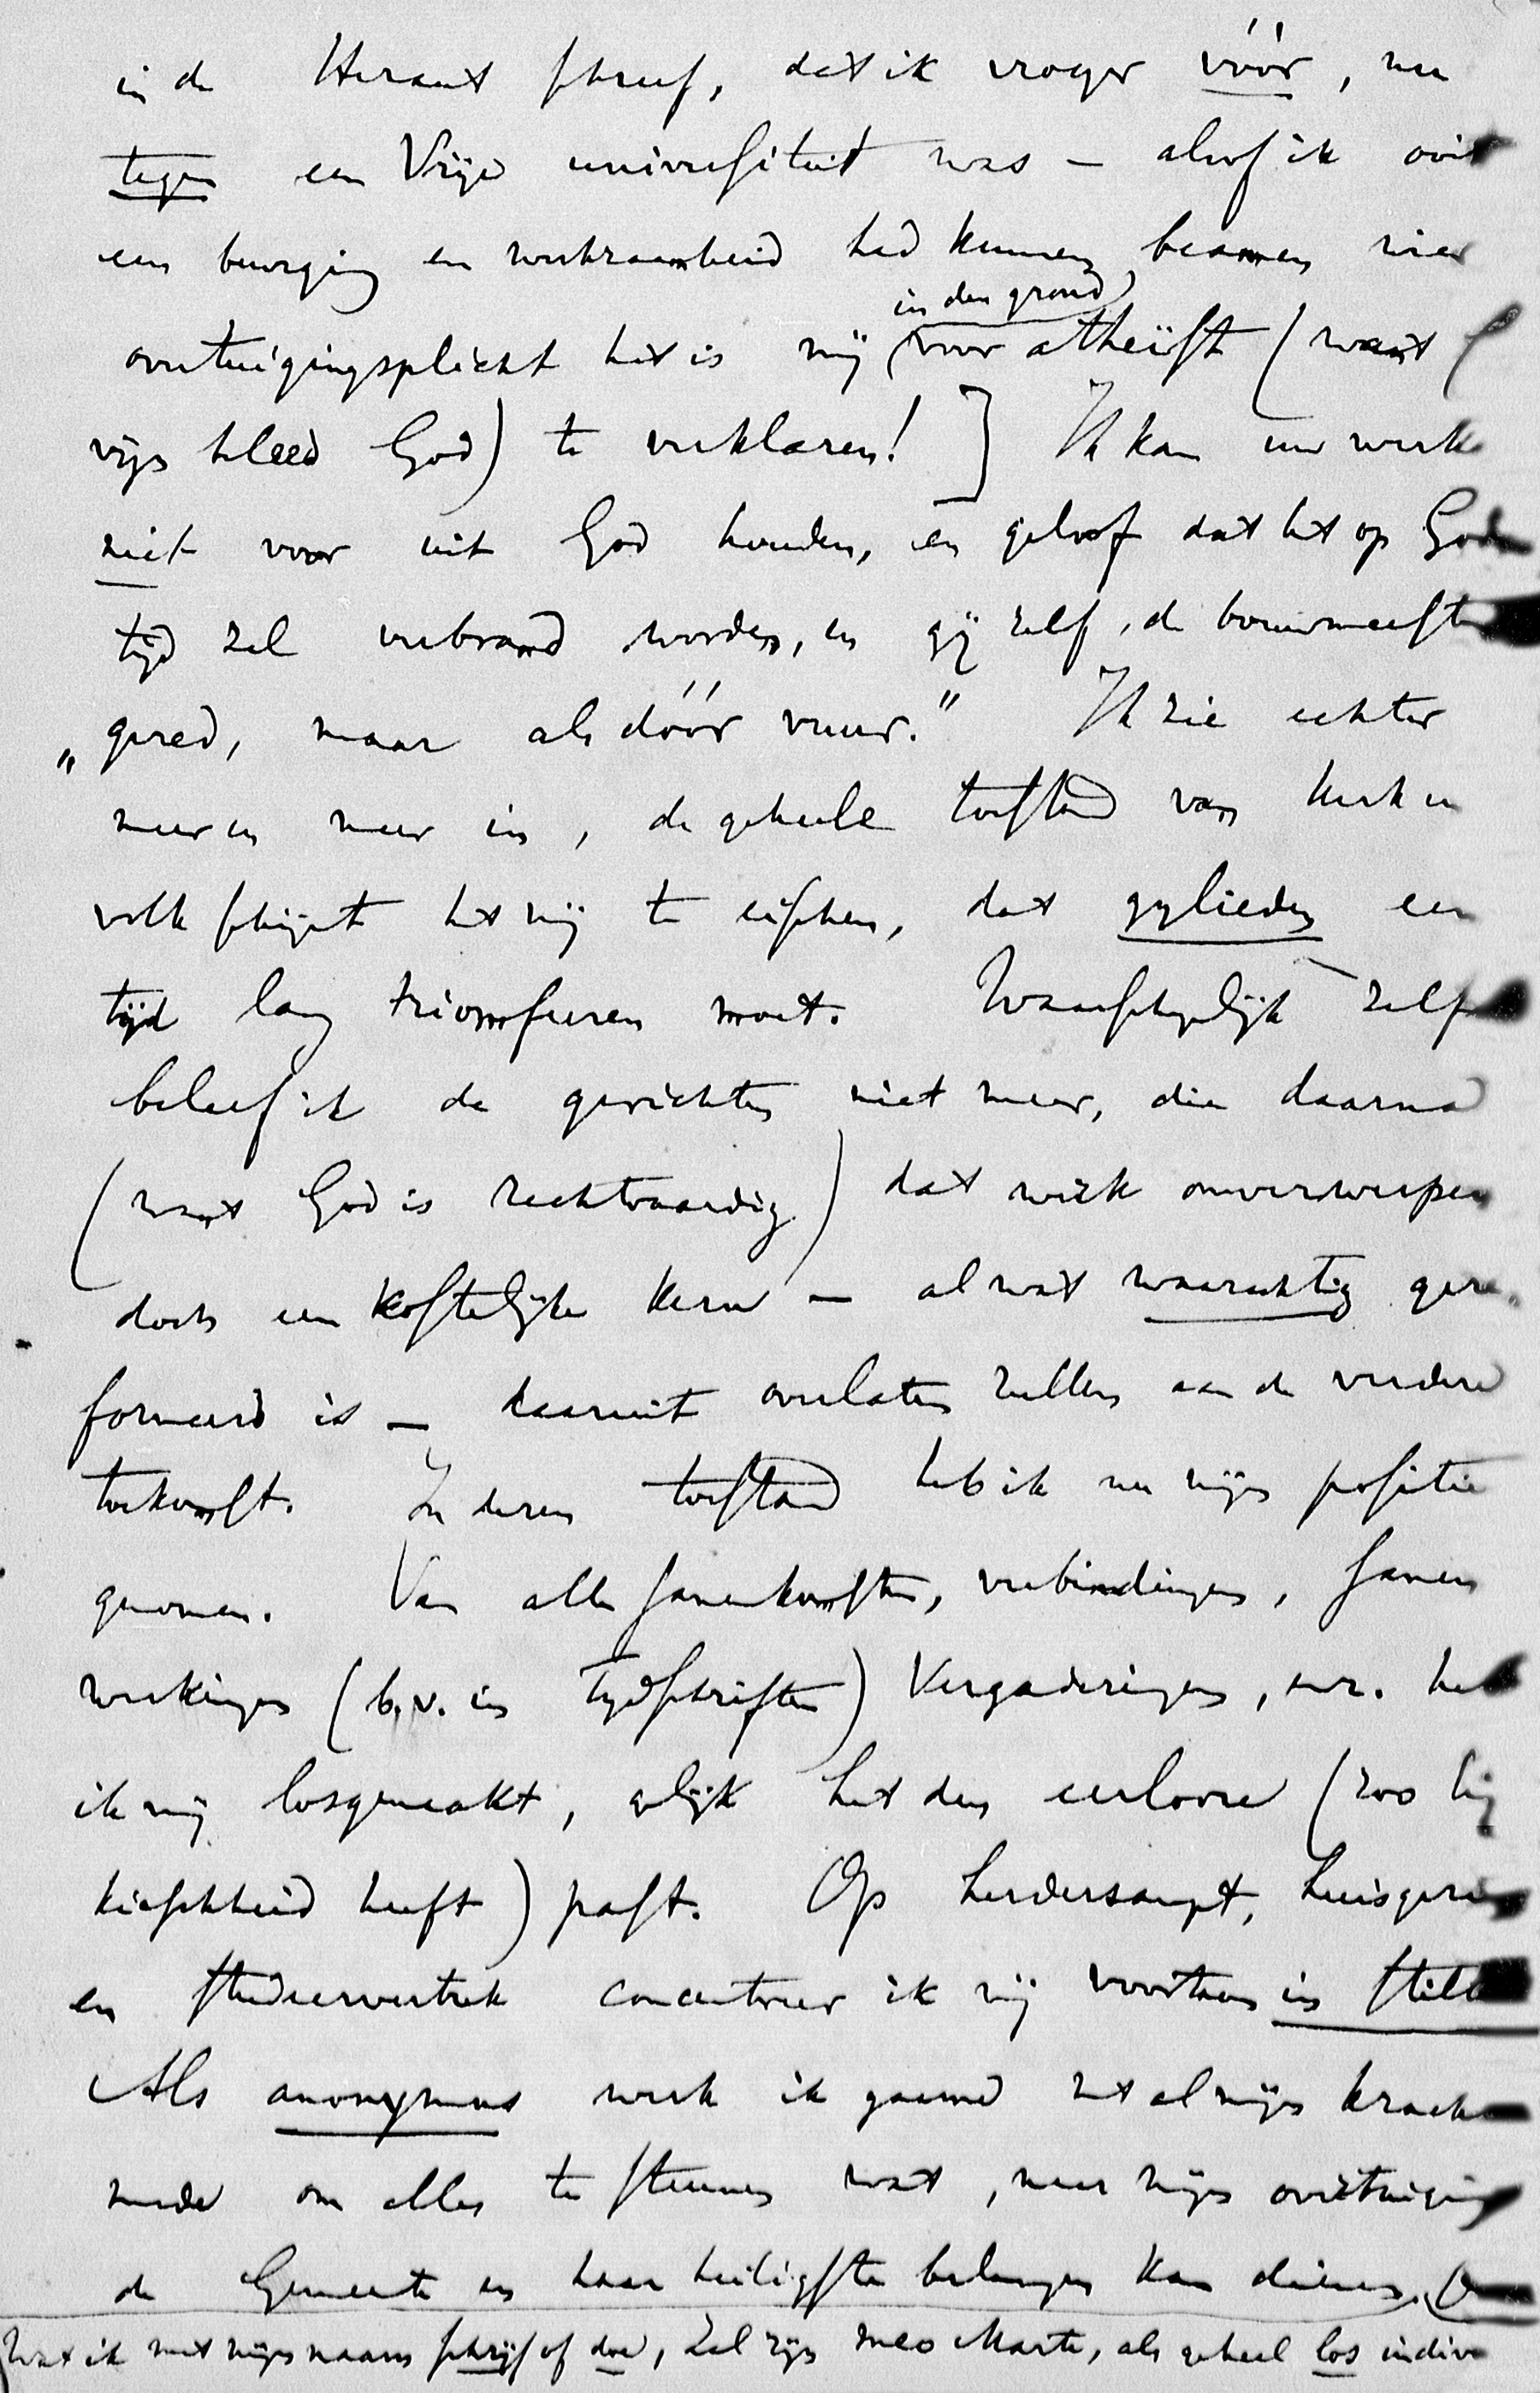 in de Heraut schreef, dat ik vroeger vóór, nu
tegen een Vrije universiteit was – alsof ik ooit
een beweging en werkzaamheid had kunnen beamen wier
overtuigingsplicht het is mij (in den grond) voor atheïst (want
mijn kleed God) te verklaren!] Ik kan uw werk
niet voor uit God houden, en geloof dat het op Gods
tijd zal verbrand worden, en gij zelf, de bouwmeester
„gered, maar als dóór vuur.” Ik zie echter
meer en meer in, de geheele toestand van kerk en
volk schijnt het mij te eischen, dat gylieden een
tijd lang triomfeeren moet. Waarschijnlijk zelf
beleef ik de gerichten niet meer, die daarna
(want God is rechtvaardig) dat werk omverwerpen
doch een kostelijke kern – al wat waarachtig gere-
formeerd is – daaruit overlaten zullen aan de verdere
toekomst. In dezen toestand heb ik nu mijn positie
genomen. Van alle samenkomsten, verbindingen, samen
werkingen (b.v. in tydschriften) Vergaderingen, enz. heb
ik mij losgemaakt, gelijk het den eerlooze (zoo hij
kieschheid heeft) past. Op herdersampt, huisgezin
en studeervertrek concentreer ik mij voortaan in stilte
Als anonymus werk ik gaarne met al mijn kracht
mede om alles te steunen wat, naar mijn overtuiging
de Gemeente en haar heiligste belangen kan dienen.
Wat ik met mijn naam schrijf of doe, zal zijn meo Marte, als geheel los indivi